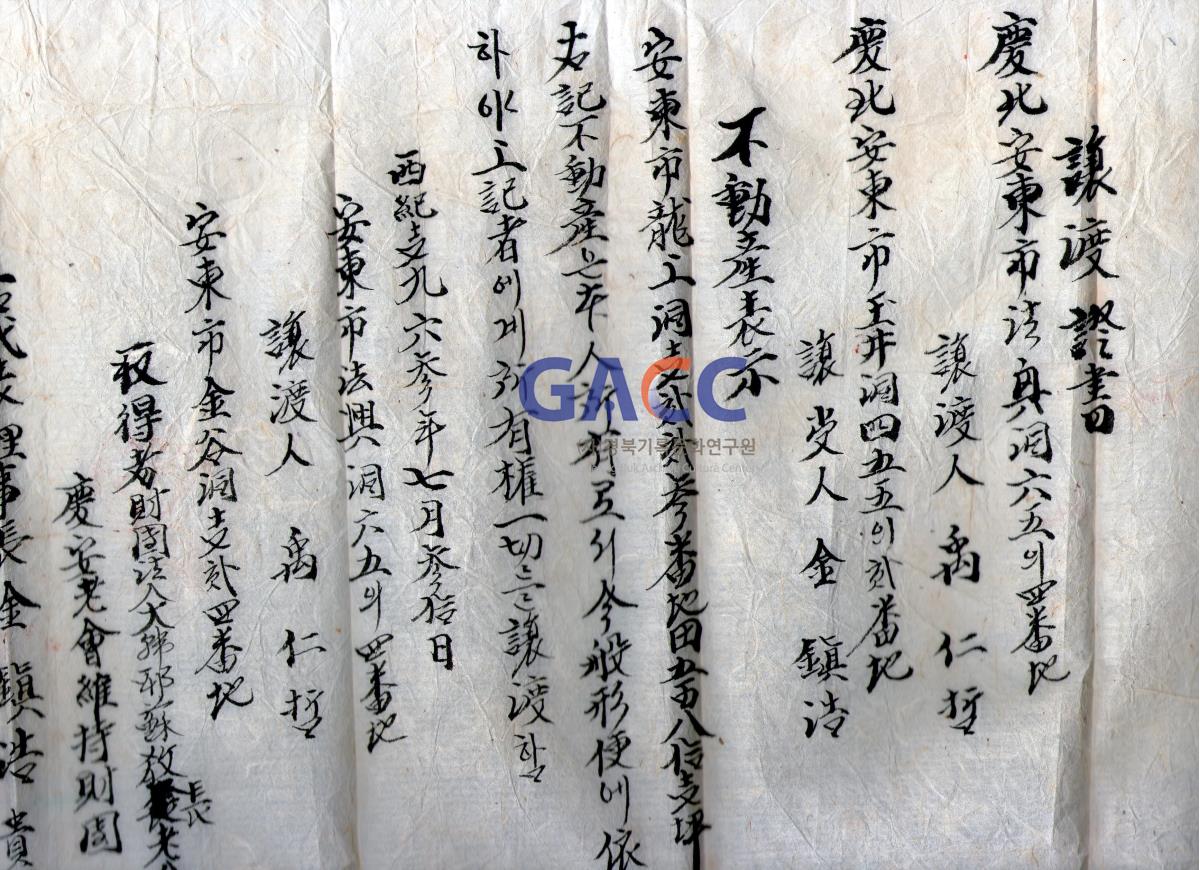 讓渡證書
慶北安東市法興洞六五의四番地
讓渡人 禹仁哲
慶北安東市玉井洞四五五의貳番地
讓受人 金鎭浩
不動産表示
安東市龍上洞壹貳貳參番地田五百八拾壹坪
右記不動産은本人所有로서今般形便에依
하야上記者에게所有權一切을讓渡함
西紀壹九六參年七月參拾日
安東市法興洞六五의四番地
讓渡人 禹仁哲
安東市金谷洞壹貳四番地
取得者財團法人大韓耶蘇敎長老
慶安老會維持財團
理事長金鎭浩 貴
GACC
경북기록문화연구원